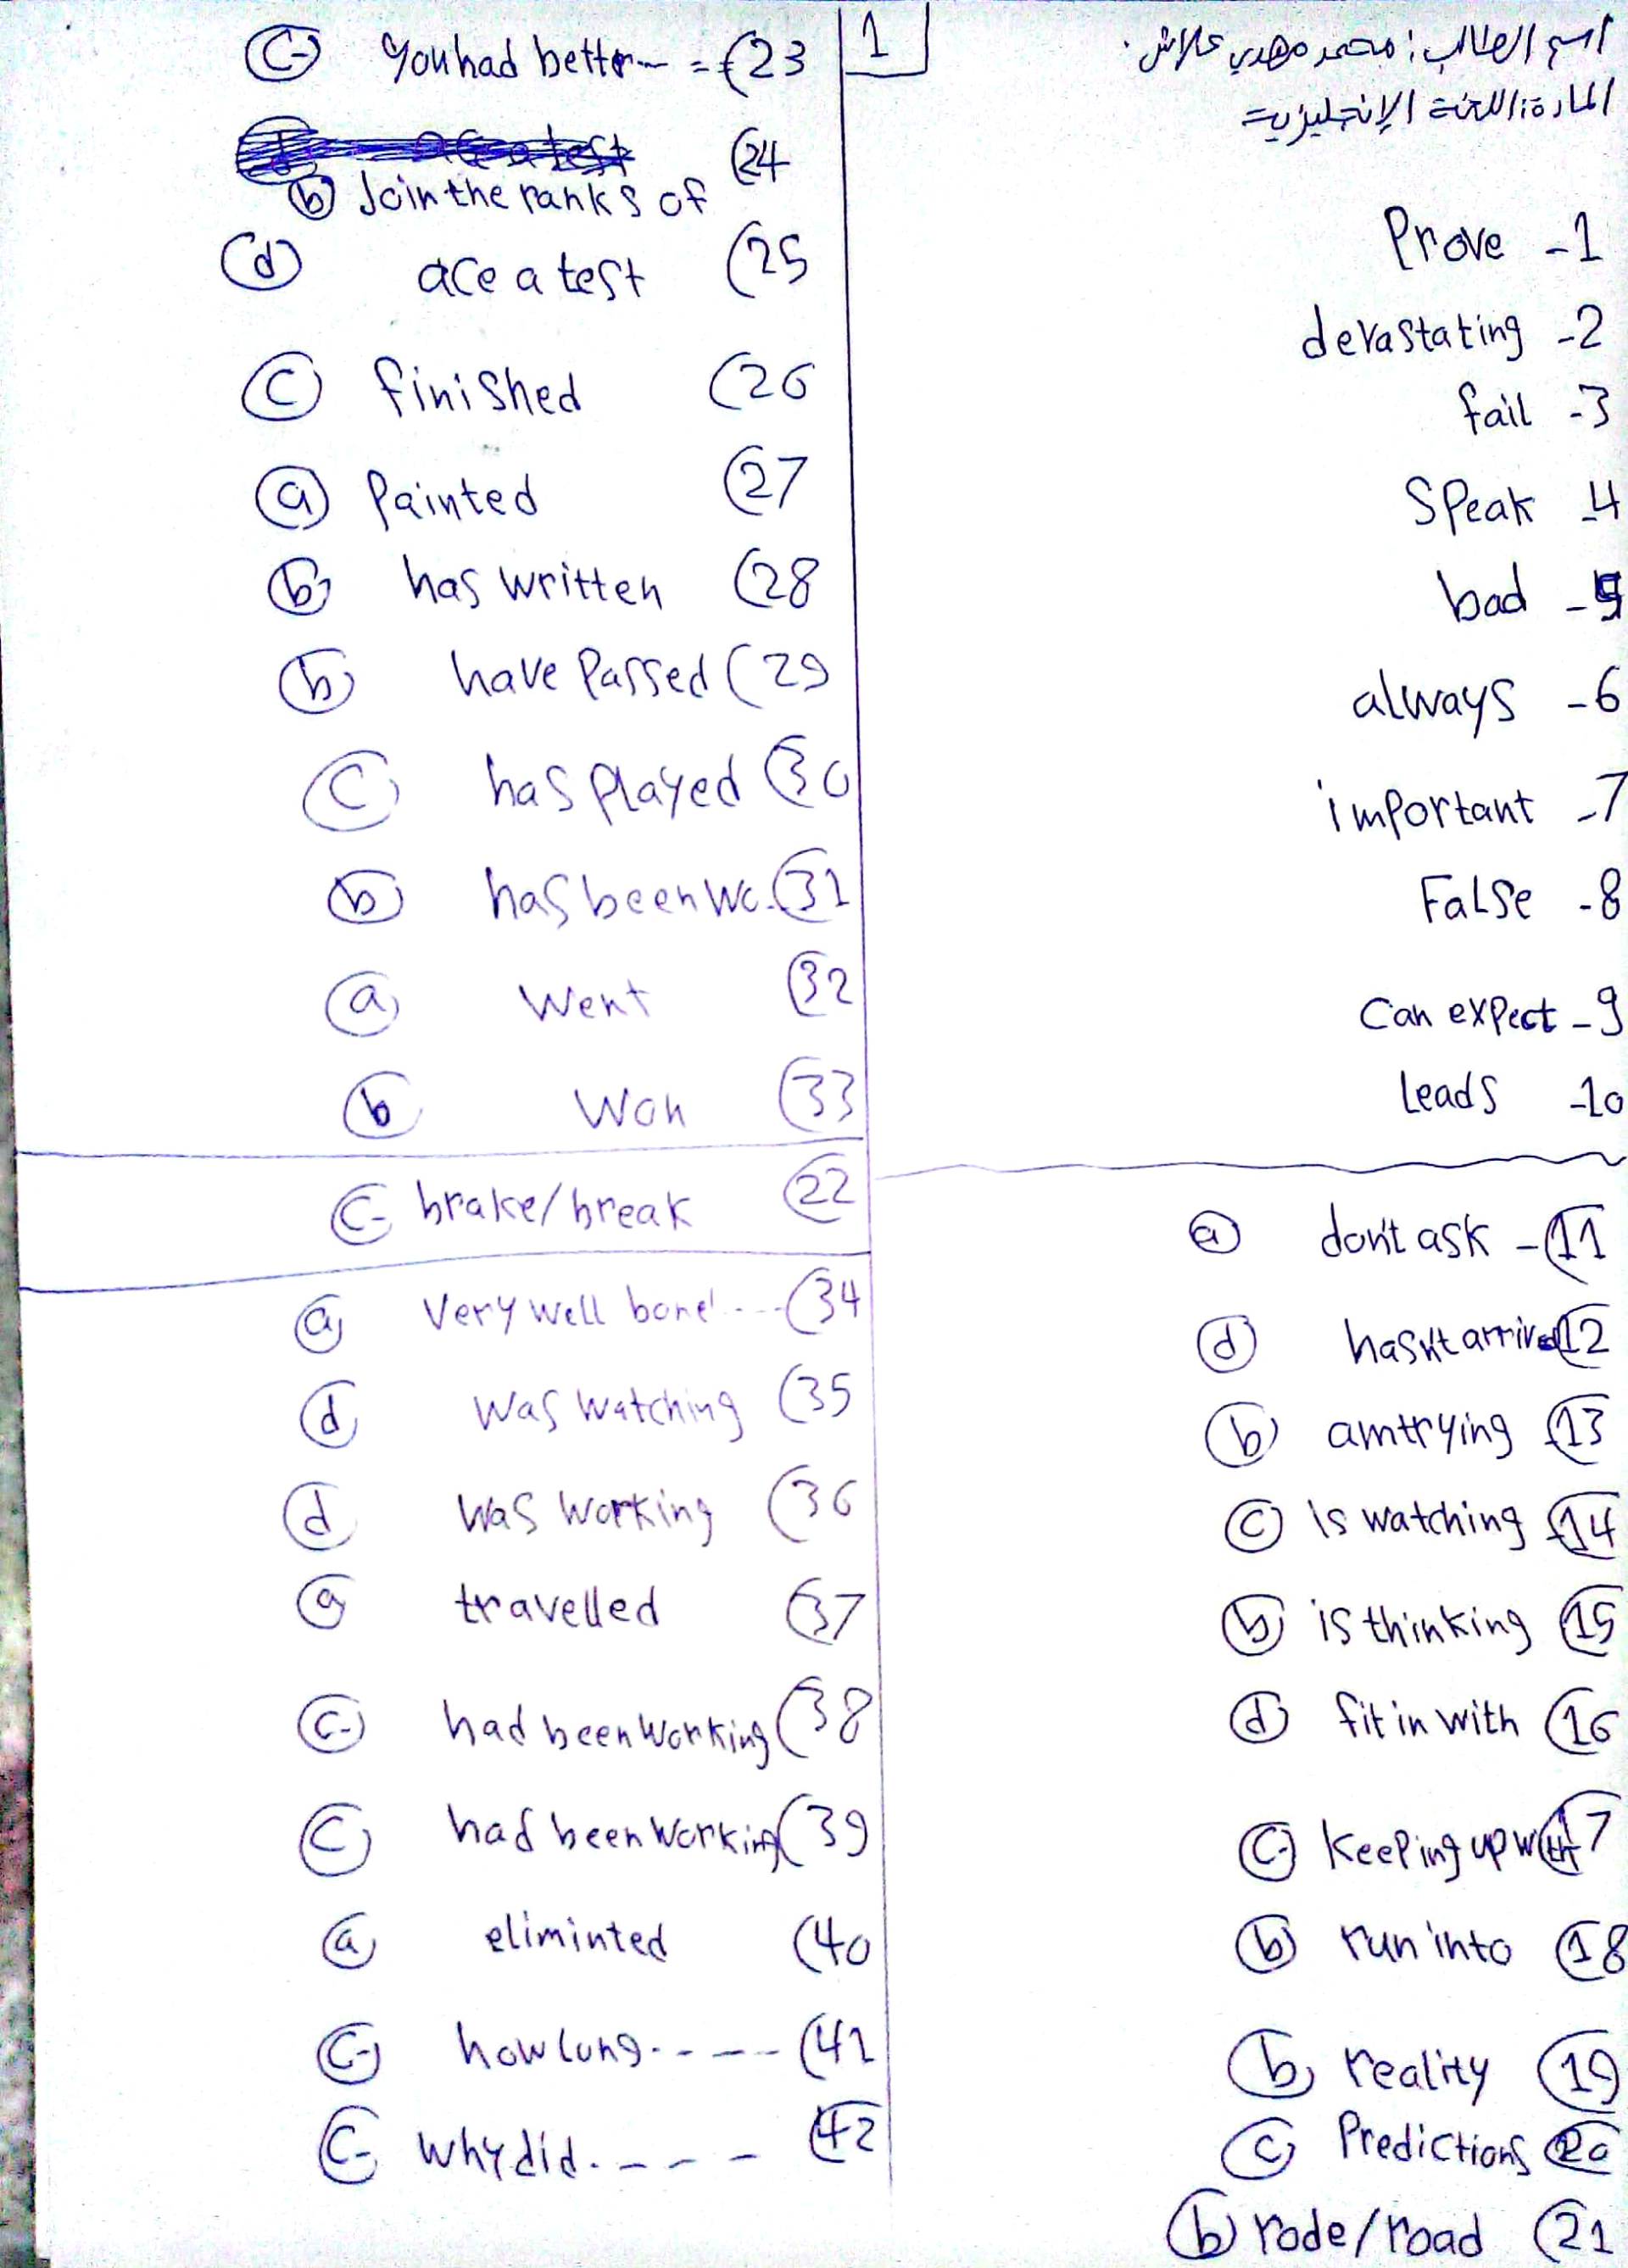 اسم الطالب: محمد مهدي علاش.
المادة: اللغة الإنجليزية
1
Prove -1
devastating -2
fail -3
Speak -4
bad -5
always -6
important -7
False -8
Can expect -9
leads -10
a don't ask -11
d hasn't arrived 12
b am trying 13
c is watching 14
b is thinking 15
d fit in with 16
c keeping up with 17
b run into 18
b reality 19
c Predictions 20
b rode/road 21
c you had better -- = 23
24
b Join the ranks of
d ace a test 25
c finished 26
a Painted 27
b has written 28
b have Passed 29
c has played 30
b has been wo. 31
a Went 32
b Won 33
c brake/break 22
a Very well 34
d was watching 35
d was working 36
a travelled 37
c had been working 38
c had been working 39
a eliminted 40
c how long ---- 41
c why did. ---- 42